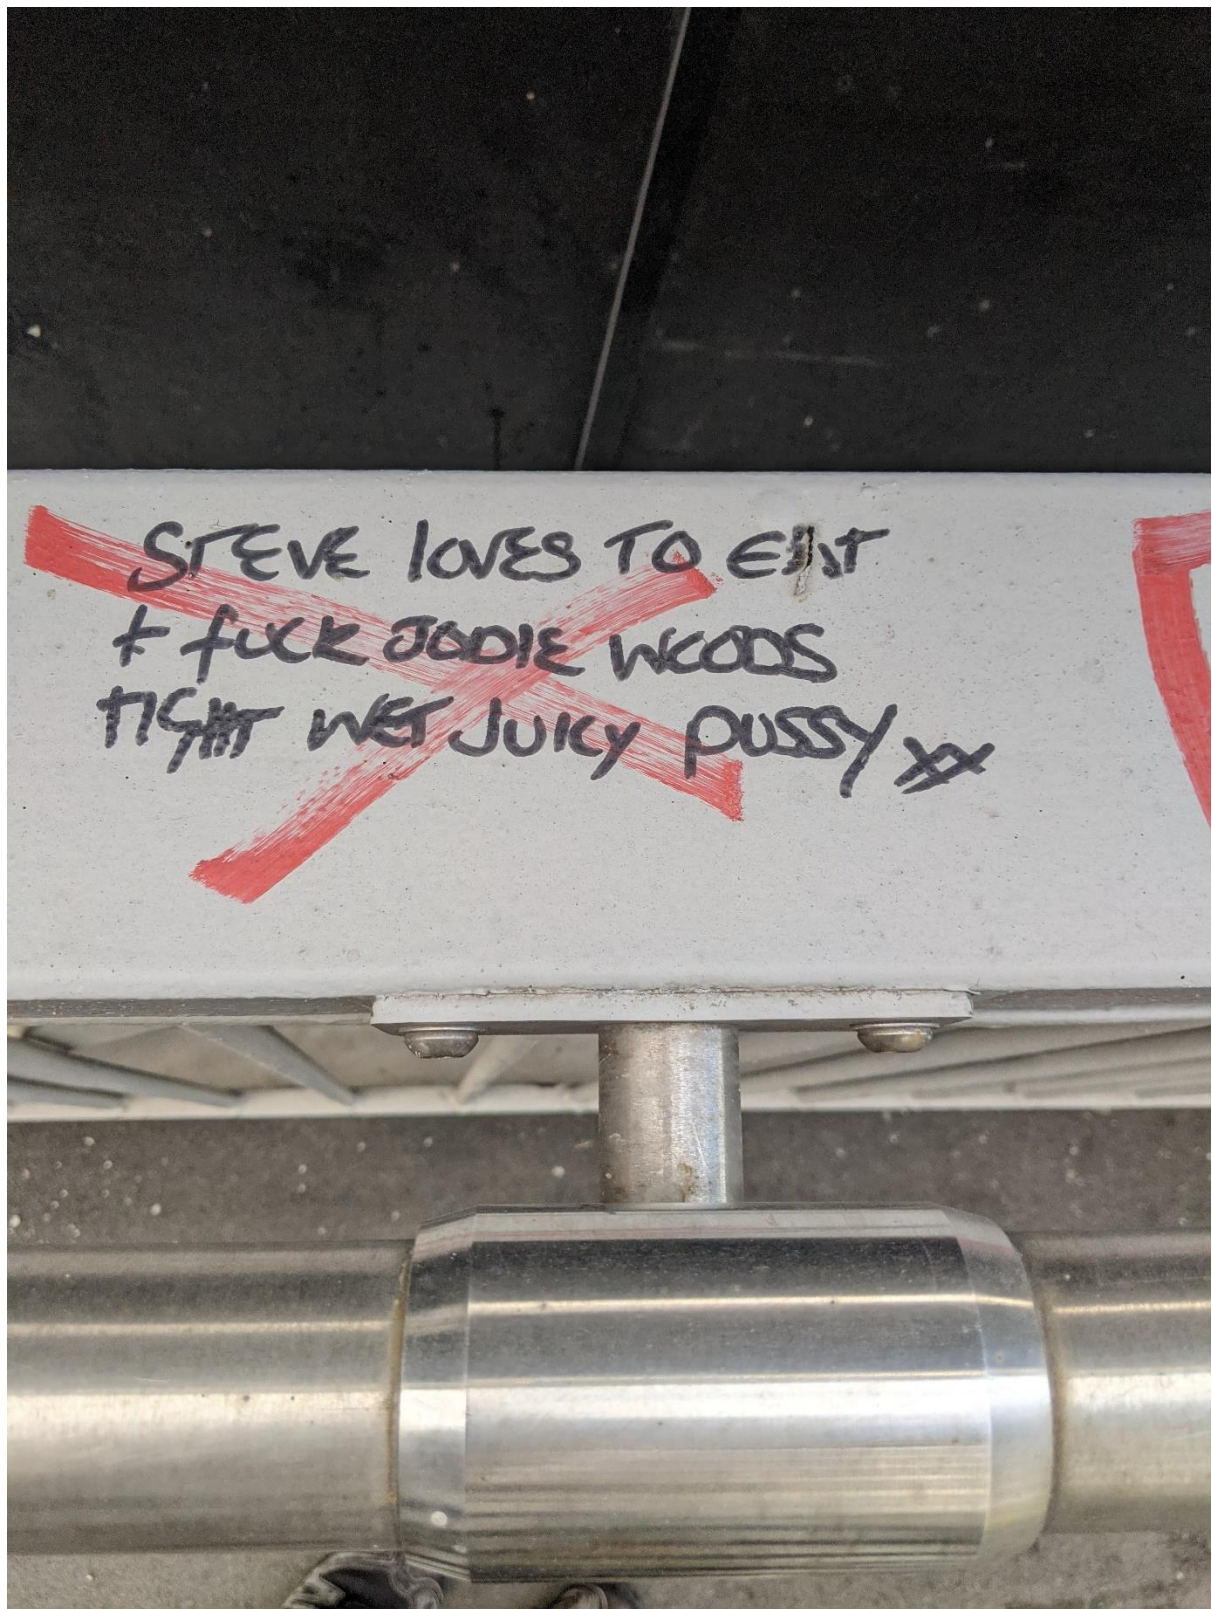 STEVE lOVES TO EAT
+ fUCK JODIE WOODS
TIGHT WET JUICY PUSSY xx